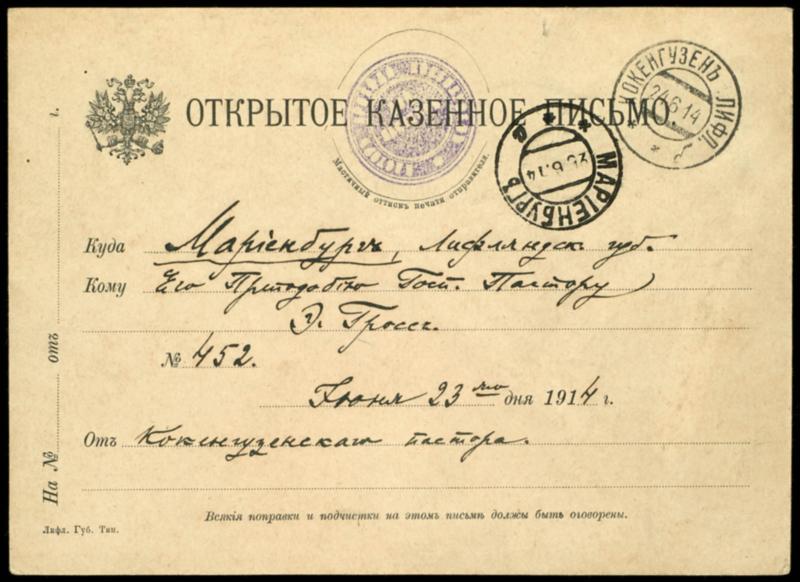 ОТКРЫТОЕ КАЗЕННОЕ ПИСЬМО.
КОКЕНГУЗЕНЪ ЛИФЛ.
24.6.14
б
МАРІЕНБУРГЪ
25.6.14
а
Мастичный оттискъ печати отправителя.
Куда Маріенбургъ, Лифляндск. губ.
Кому Его Преподобію Госп. Пастору
Э. Гроссъ.
№ 452.
Іюня 23 дня 1914 г.
Отъ Кокенгузенскаго пастора.
На № отъ г.
Всякія поправки и подчистки на этомъ письмѣ должы быть оговорены.
Лифл. Губ. Тип.